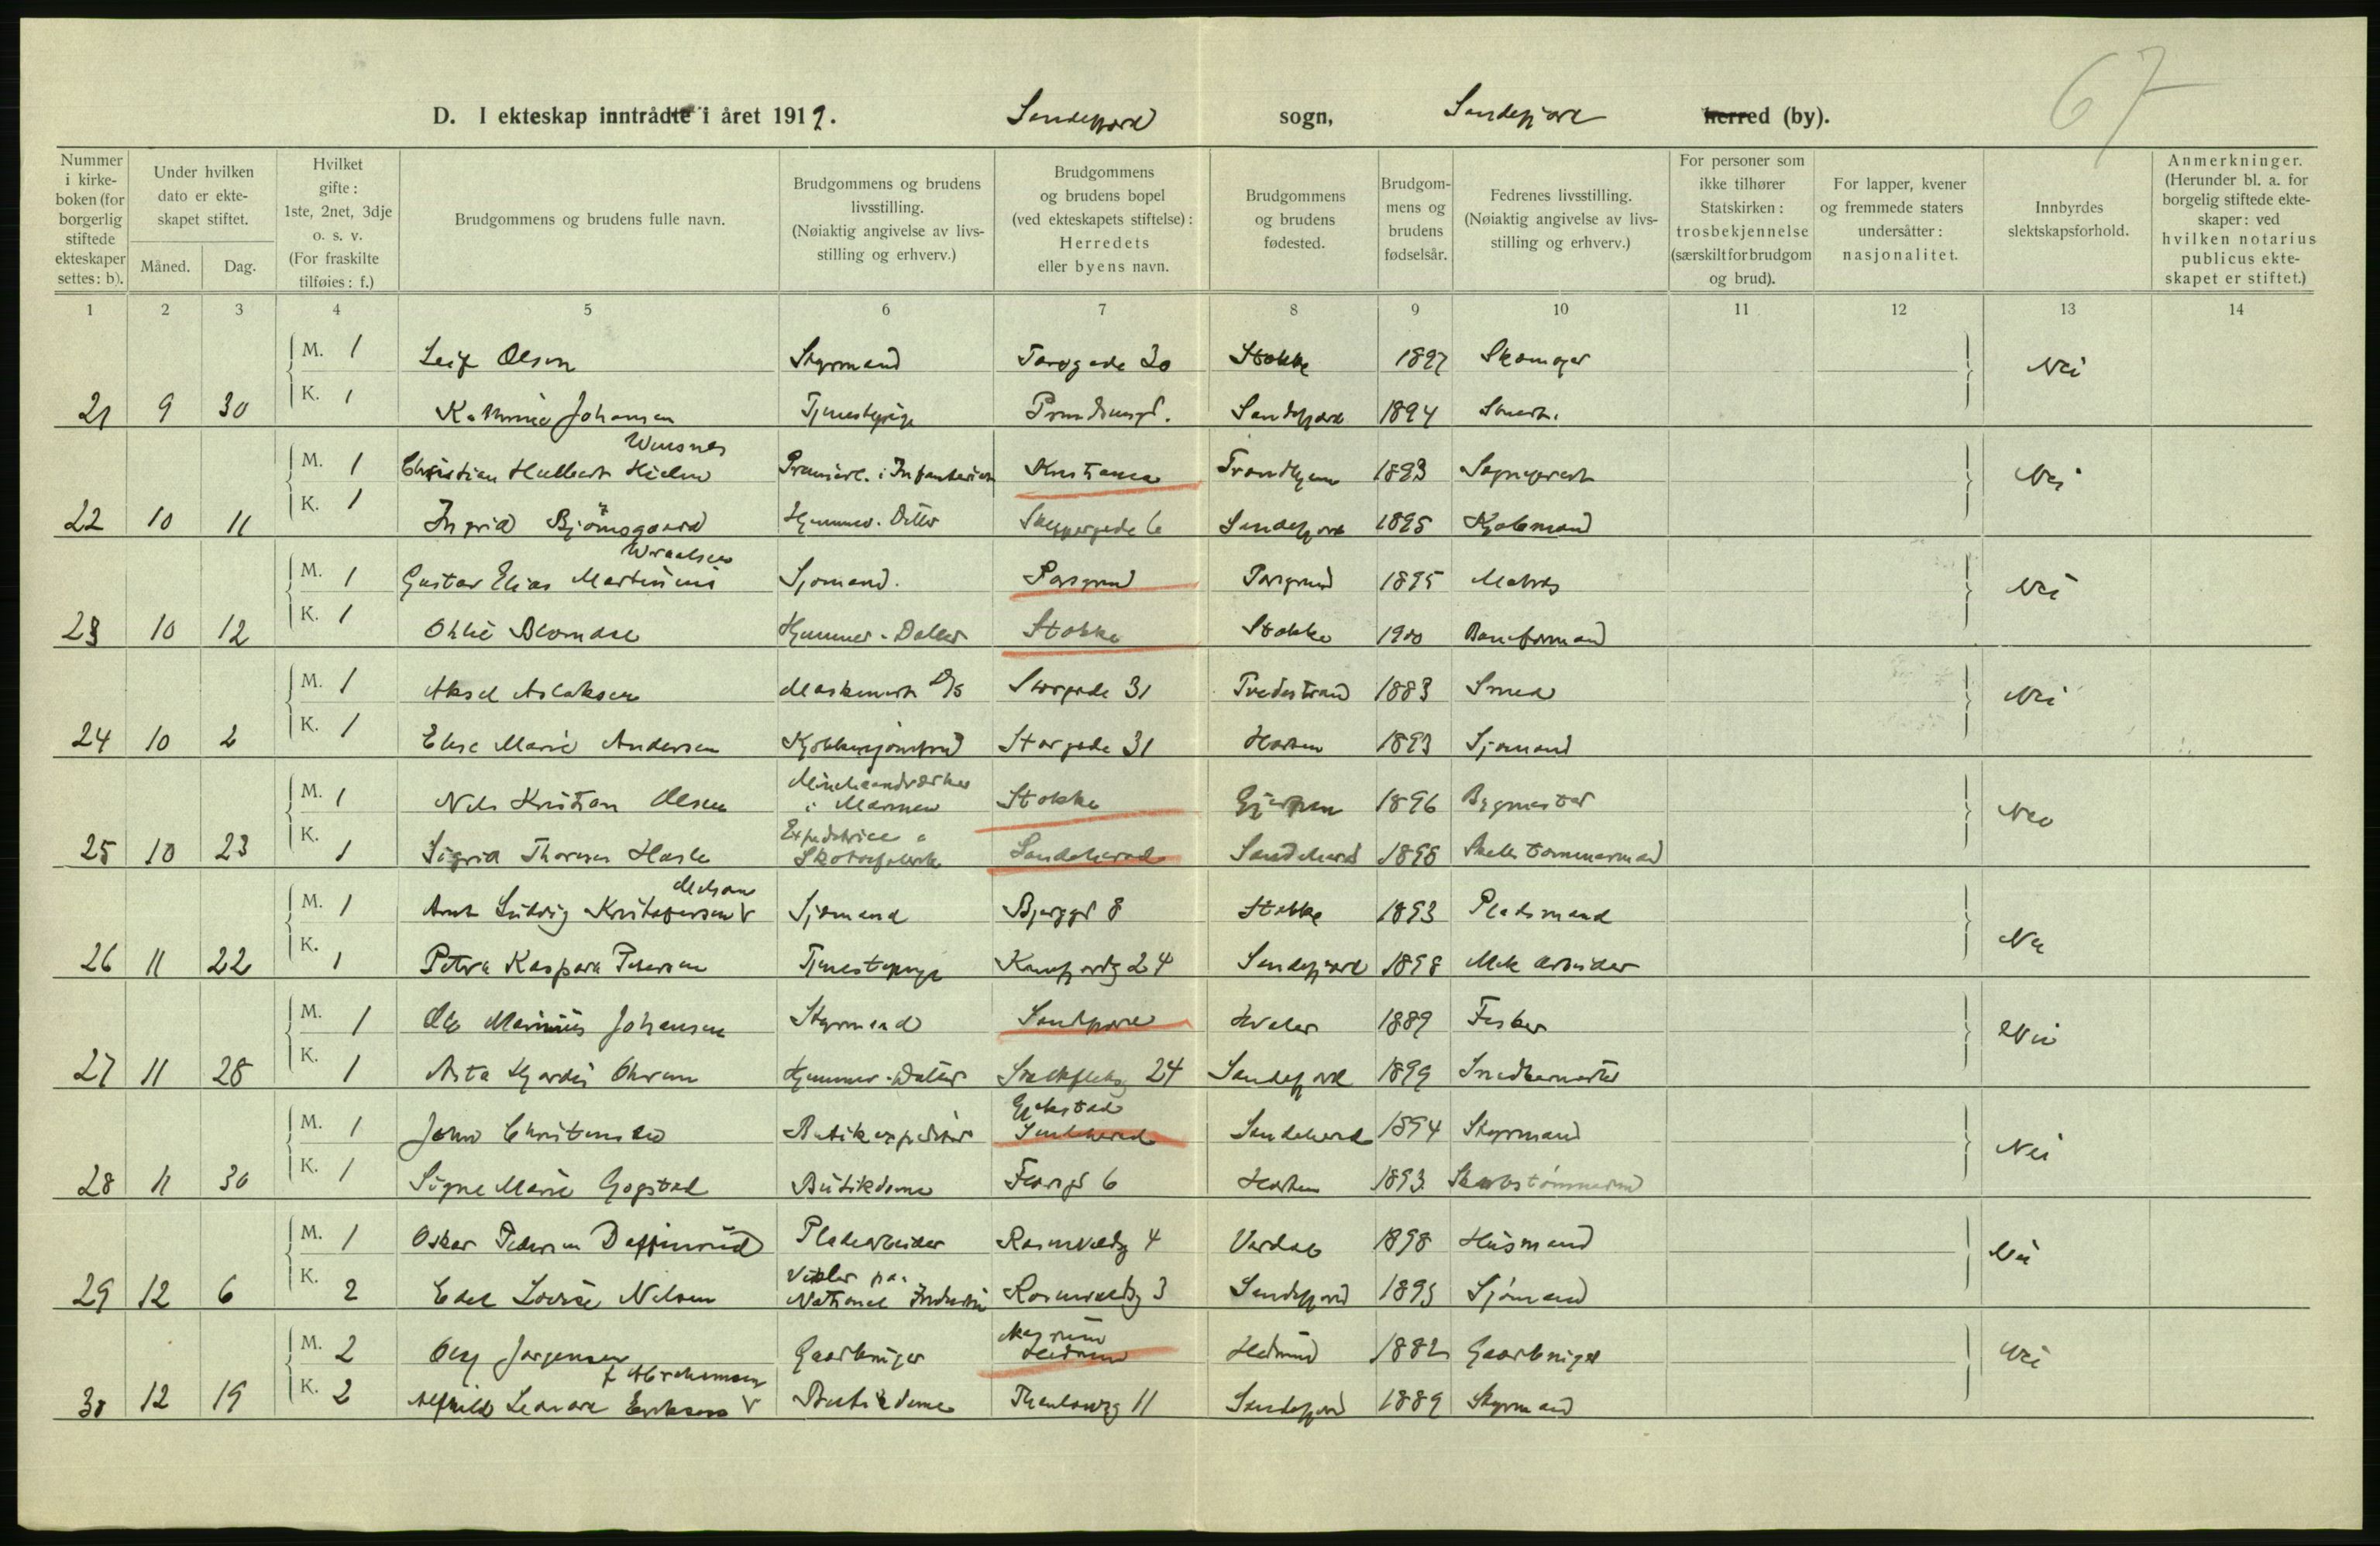 67
D. I ekteskap inntrådte i året 1919. Sandefjord sogn, Sandefjord herred (by).
Nummer i kirkeboken (for borgerlig stiftede ekteskaper settes: b).
Under hvilken dato er ekteskapet stiftet.
Måned. Dag.
Hvilket gifte: 1ste, 2net, 3dje o. s. v. (For fraskilte tilføies: f.)
Brudgommens og brudens fulle navn.
Brudgommens og brudens livsstilling. (Nøiaktig angivelse av livsstilling og erhverv.)
Brudgommens og brudens bopel (ved ekteskapets stiftelse): Herredets eller byens navn.
Brudgommens og brudens fødested.
Brudgommens og brudens fødselsår.
Fedrenes livsstilling. (Nøiaktig angivelse av livsstilling og erhverv.)
For personer som ikke tilhører Statskirken: trosbekjennelse (særskilt for brudgom og brud).
For lapper, kvener og fremmede staters undersåtter: nasjonalitet.
Innbyrdes slektskapsforhold.
Anmerkninger. (Herunder bl. a. for borgelig stiftede ekteskaper: ved hvilken notarius publicus ekteskapet er stiftet.)
1 2 3 4 5 6 7 8 9 10 11 12 13 14
M. 1 Leif Olsen Styrmand Torvgade 20 Stokke 1897 Skomager Nei
21 9 30 K. 1 Kathrine Johansen Tjenestepige Sandefjord 1894
M. 1 Christian Hielm Premierl. i Infanteriet Kristiania Trondhjem 1893 Sogneprest Nei
22 10 11 K. 1 Ingrid Bjørnsgaard Hjemmev. Datter Skippergade 6 Sandefjord 1895 Kjøbmand
Wraalsen
M. 1 Gustav Elias Martinius Sjømand. Porsgrund Porsgrund 1895 Matros Nei
23 10 12 K. 1 Hjemmev. Datter Stokke Stokke 1900 Baneformand
M. 1 Aksel Aslaksen Maskinist D/S Storgade 31 Tvedestrand 1883 Smed Nei
24 10 2 K. 1 Elise Marie Andersen Kjøkkenjomfru Storgade 31 Horten 1893 Sjømand
Minehaandverker
M. 1 Nils Kristian Olsen i Marinen Stokke Gjerpen 1896 Bygmester Nei
25 10 23 K. 1 Sigrid Hasle Expeditrice Sandeherred Sandeherred 1898 tømmermand
M. 1 Arnt Ludvig Kristofersen Sjømand Bjerggt 8 Stokke 1893 Pladsmand Nei
26 11 22 K. 1 Petra Kaspara Petersen Tjenestepige 24 Sandefjord 1898 Mek arbeider
M. 1 Ole Marinius Johansen Styrmand Sandefjord Hvaler 1889 Fisker Nei
27 11 28 K. 1 Asta Hjørdis Hjemmev. Datter 24 Sandefjord 1899 Snedkermester
Gjekstad
M. 1 John Christensen Butikexpeditør Sandeherred Sandeherred 1894 Styrmand Nei
28 11 30 K. 1 Signe Marie Gogstad Butikdame 6 Horten 1893 Skibstømmermd
M. 1 Oskar Pedersen Deffinrud Pladearbeider Rosenvoldg 4 Vardal 1898 Husmand Nei
29 12 6 K. 2 Edel Lovise Nelson National Industri Rosenvoldg 3 Sandefjord 1895 Sjømand
M. 2 Olaf Jørgensen Gaardbruger Hedrum Hedrum 1882 Gaardbruger Nei
f. Abrahamsen
30 12 19 K. 2 Alfhild Leonore Eriksen Butikdame Thaulowsg 11 Sandefjord 1889 Styrmand